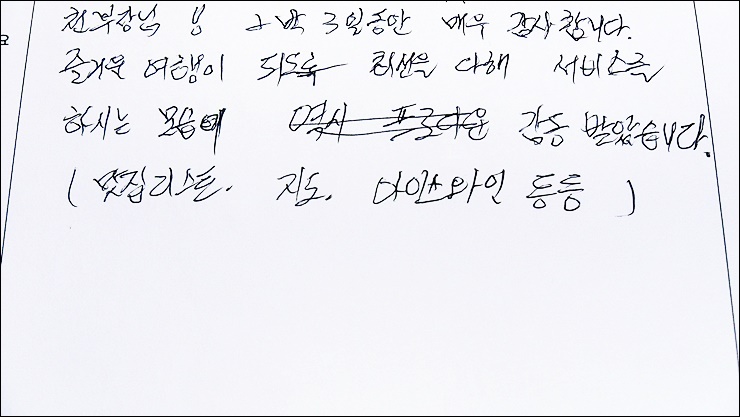 천부장님 !! 2박 3일동안 매우 감사합니다.
즐거운 여행이 되도록 최선을 다해 서비스를
하시는 모습에 역시 프로다운 감동 받았습니다.
( 맛집리스트. 지도. 아이스와인 등등 )